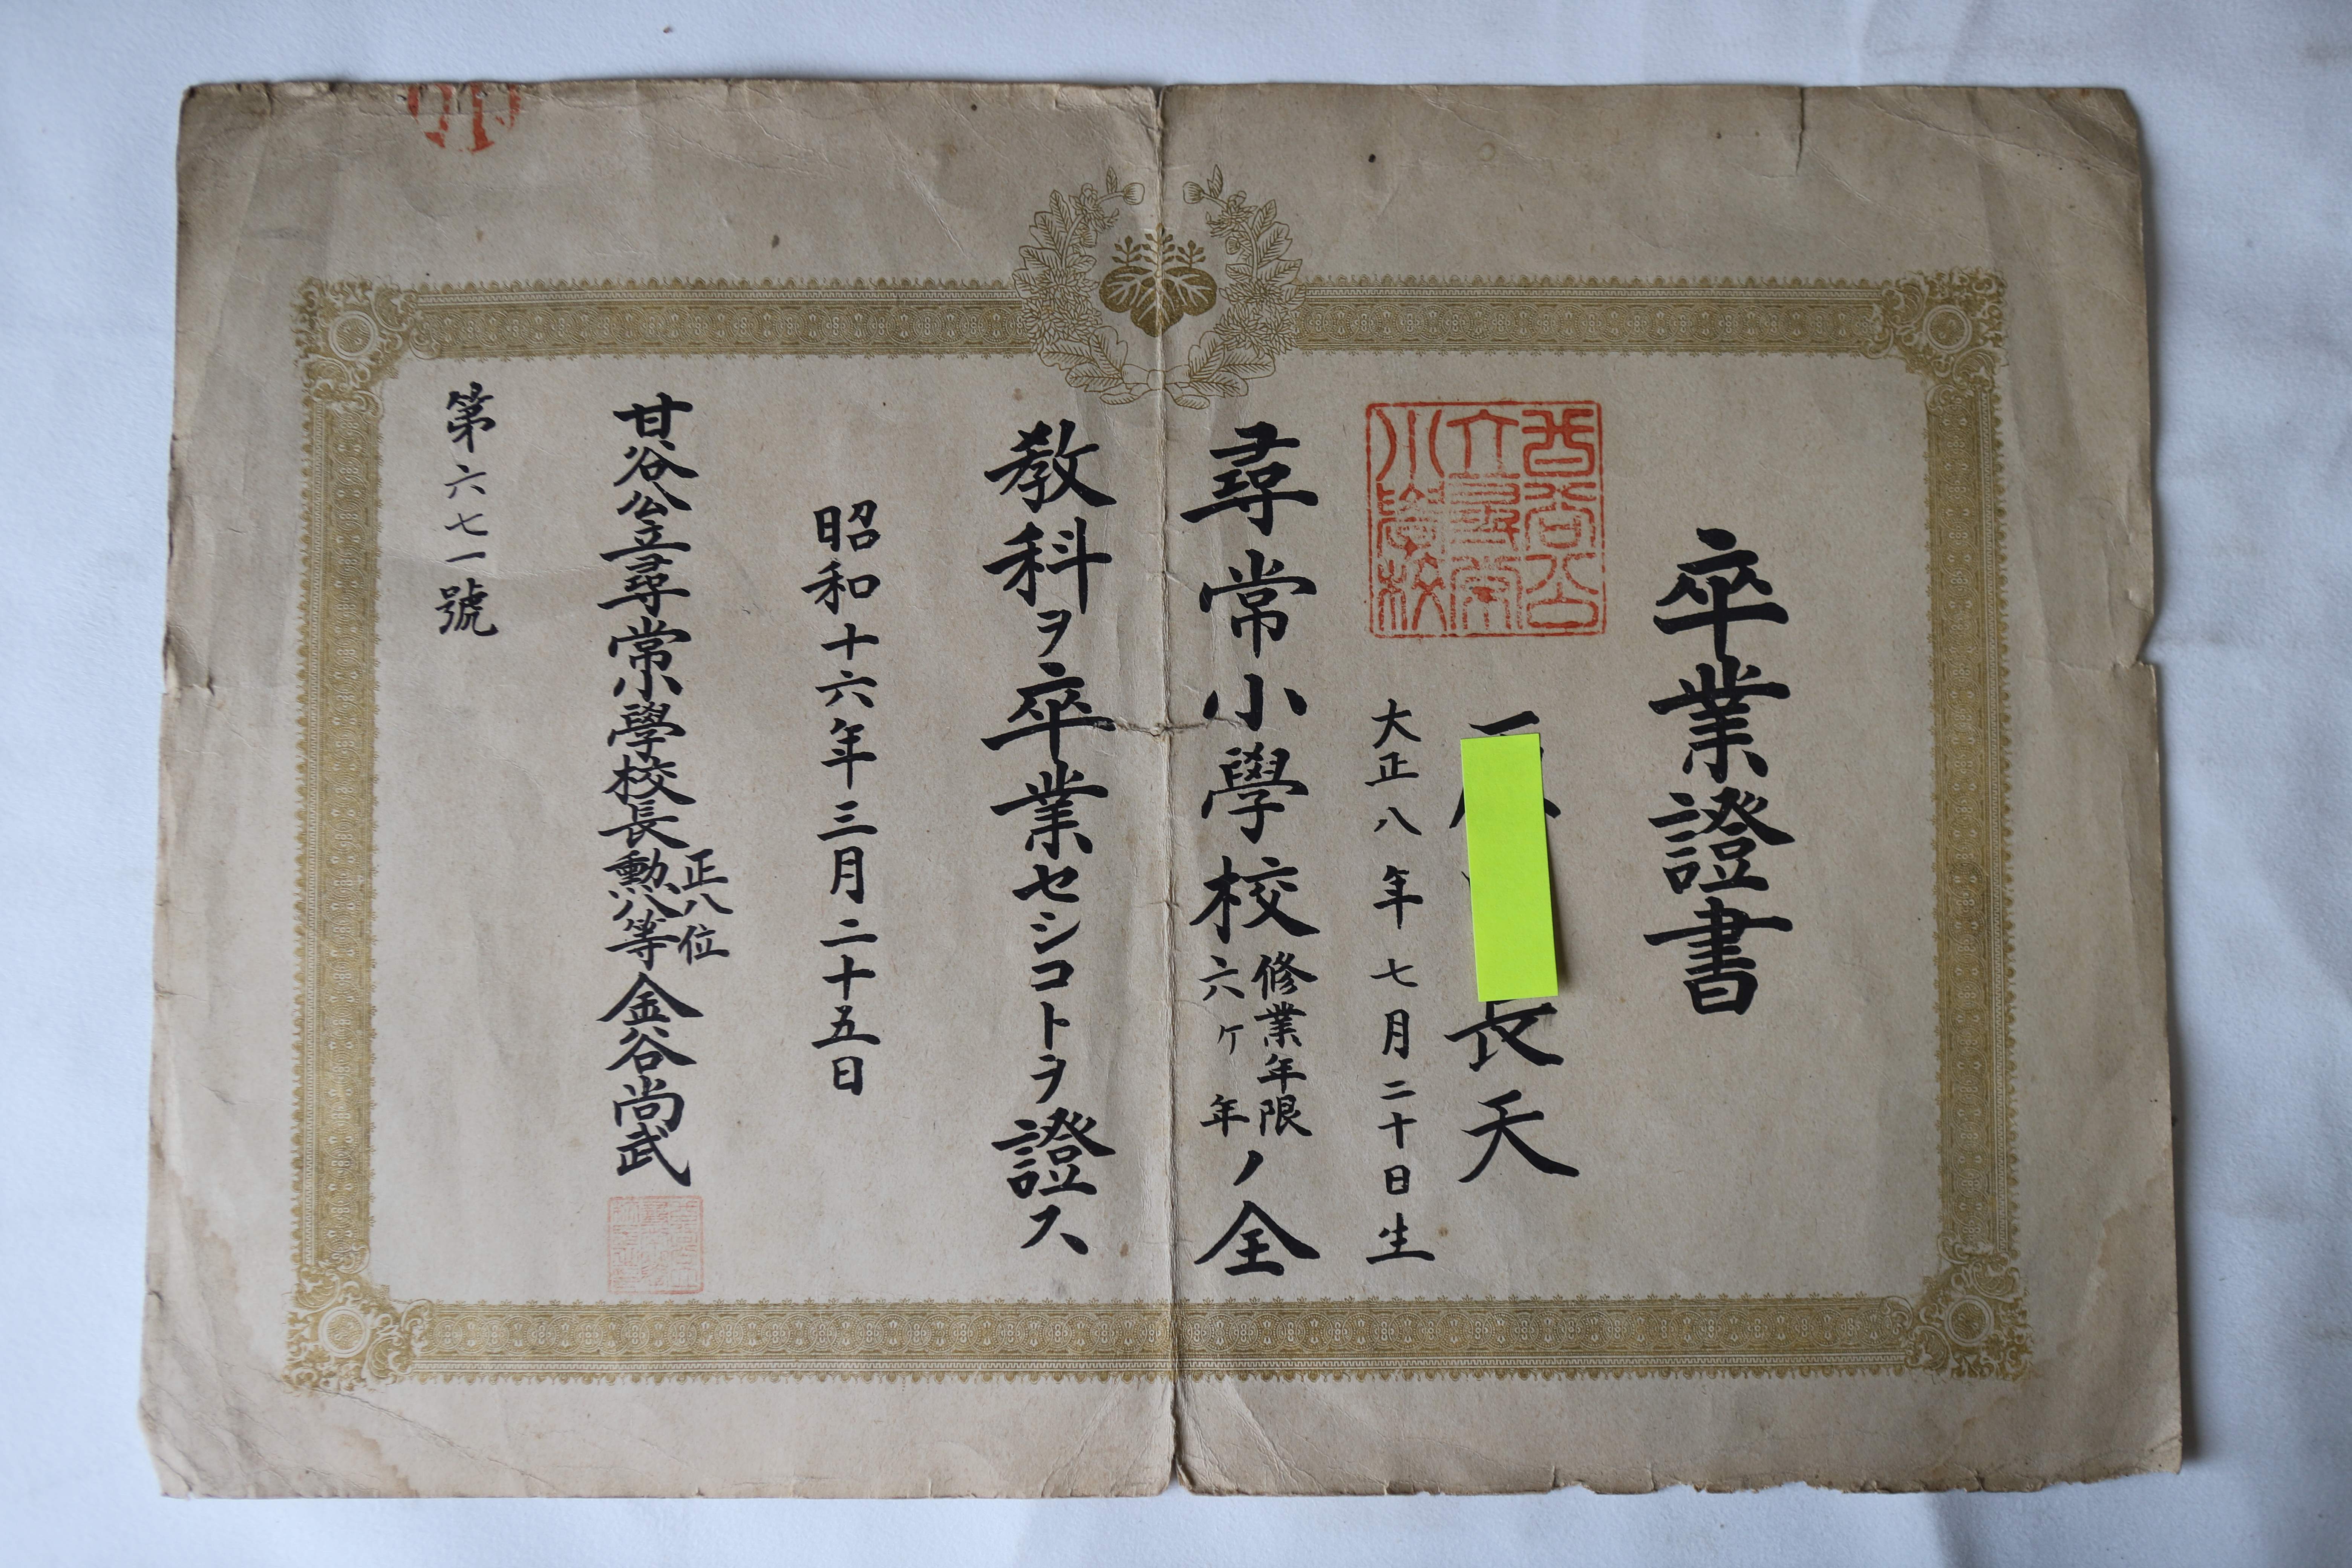 卒業證書
長夭
大正八年七月二十日生
尋常小學校修業年限六ケ年ノ全
教科ヲ卒業セシコトヲ證ス
昭和十六年三月二十五日
甘谷公立尋常小學校長正八位勲八等金谷尚武
第六七一號
甘谷公立尋常小學校